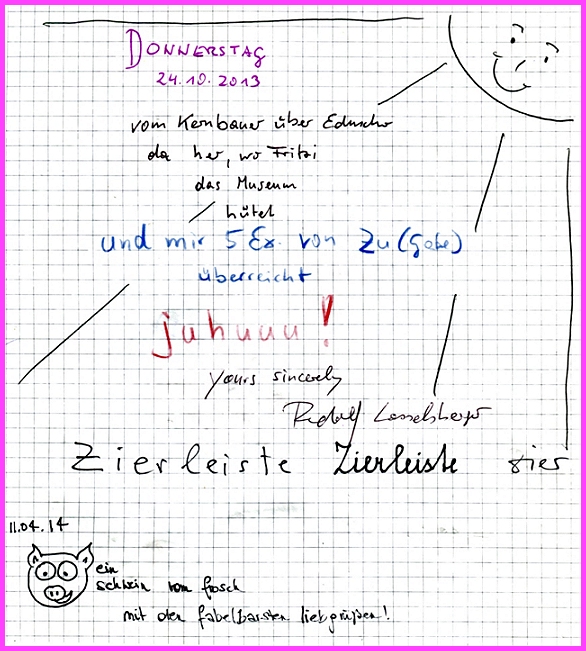 DONNERSTAG
24.10.2013
vom Kernbauer über Eduscho
da her, wo Fritzi
das Museum
hütet
und mir 5 Ex. von Zu(Gabe)
überreicht
juhuuu!
yours sincerely
Rudolf Lasselsberger
Zierleiste Zierleiste zier
11.04.14
ein
schwein vom frosch
mit den fabelbarsten liebgrüßen!